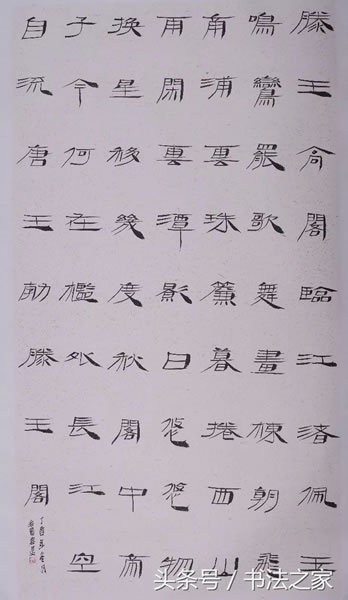 滕王高閣臨江渚佩玉
鳴鸞罷歌舞畫棟朝飛
南浦雲珠簾暮捲西山
雨閑雲潭影日悠悠物
換星移幾度秋閣中帝
子今何在檻外長江空
自流唐王勃滕王閣
丁酉
头条号 / 书法之家